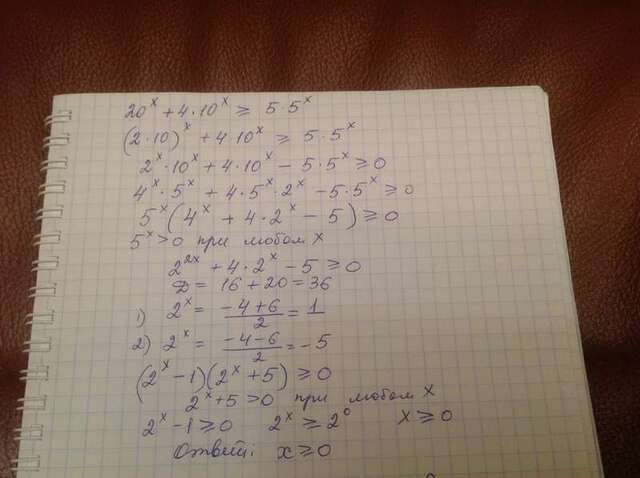 20ˣ + 4·10ˣ ≥ 5·5ˣ
(2·10)ˣ + 4·10ˣ ≥ 5·5ˣ
2ˣ·10ˣ + 4·10ˣ − 5·5ˣ ≥ 0
4ˣ·5ˣ + 4·5ˣ·2ˣ − 5·5ˣ ≥ 0
5ˣ(4ˣ + 4·2ˣ − 5) ≥ 0
5ˣ > 0 при любом x
2²ˣ + 4·2ˣ − 5 ≥ 0
D = 16 + 20 = 36
1) 2ˣ = (−4+6)/2 = 1
2) 2ˣ = (−4−6)/2 = −5
(2ˣ − 1)(2ˣ + 5) ≥ 0
2ˣ + 5 > 0 при любом x
2ˣ − 1 ≥ 0 2ˣ ≥ 2⁰ x ≥ 0
Ответ: x ≥ 0